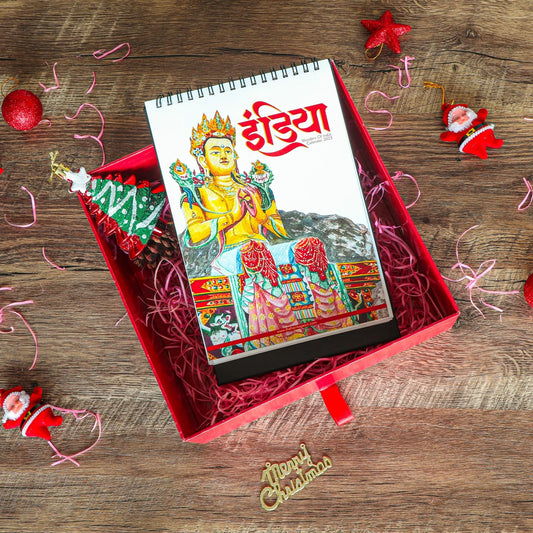 इंडिया
Wonders Of India
Calendar 2023
Merry
Christmas